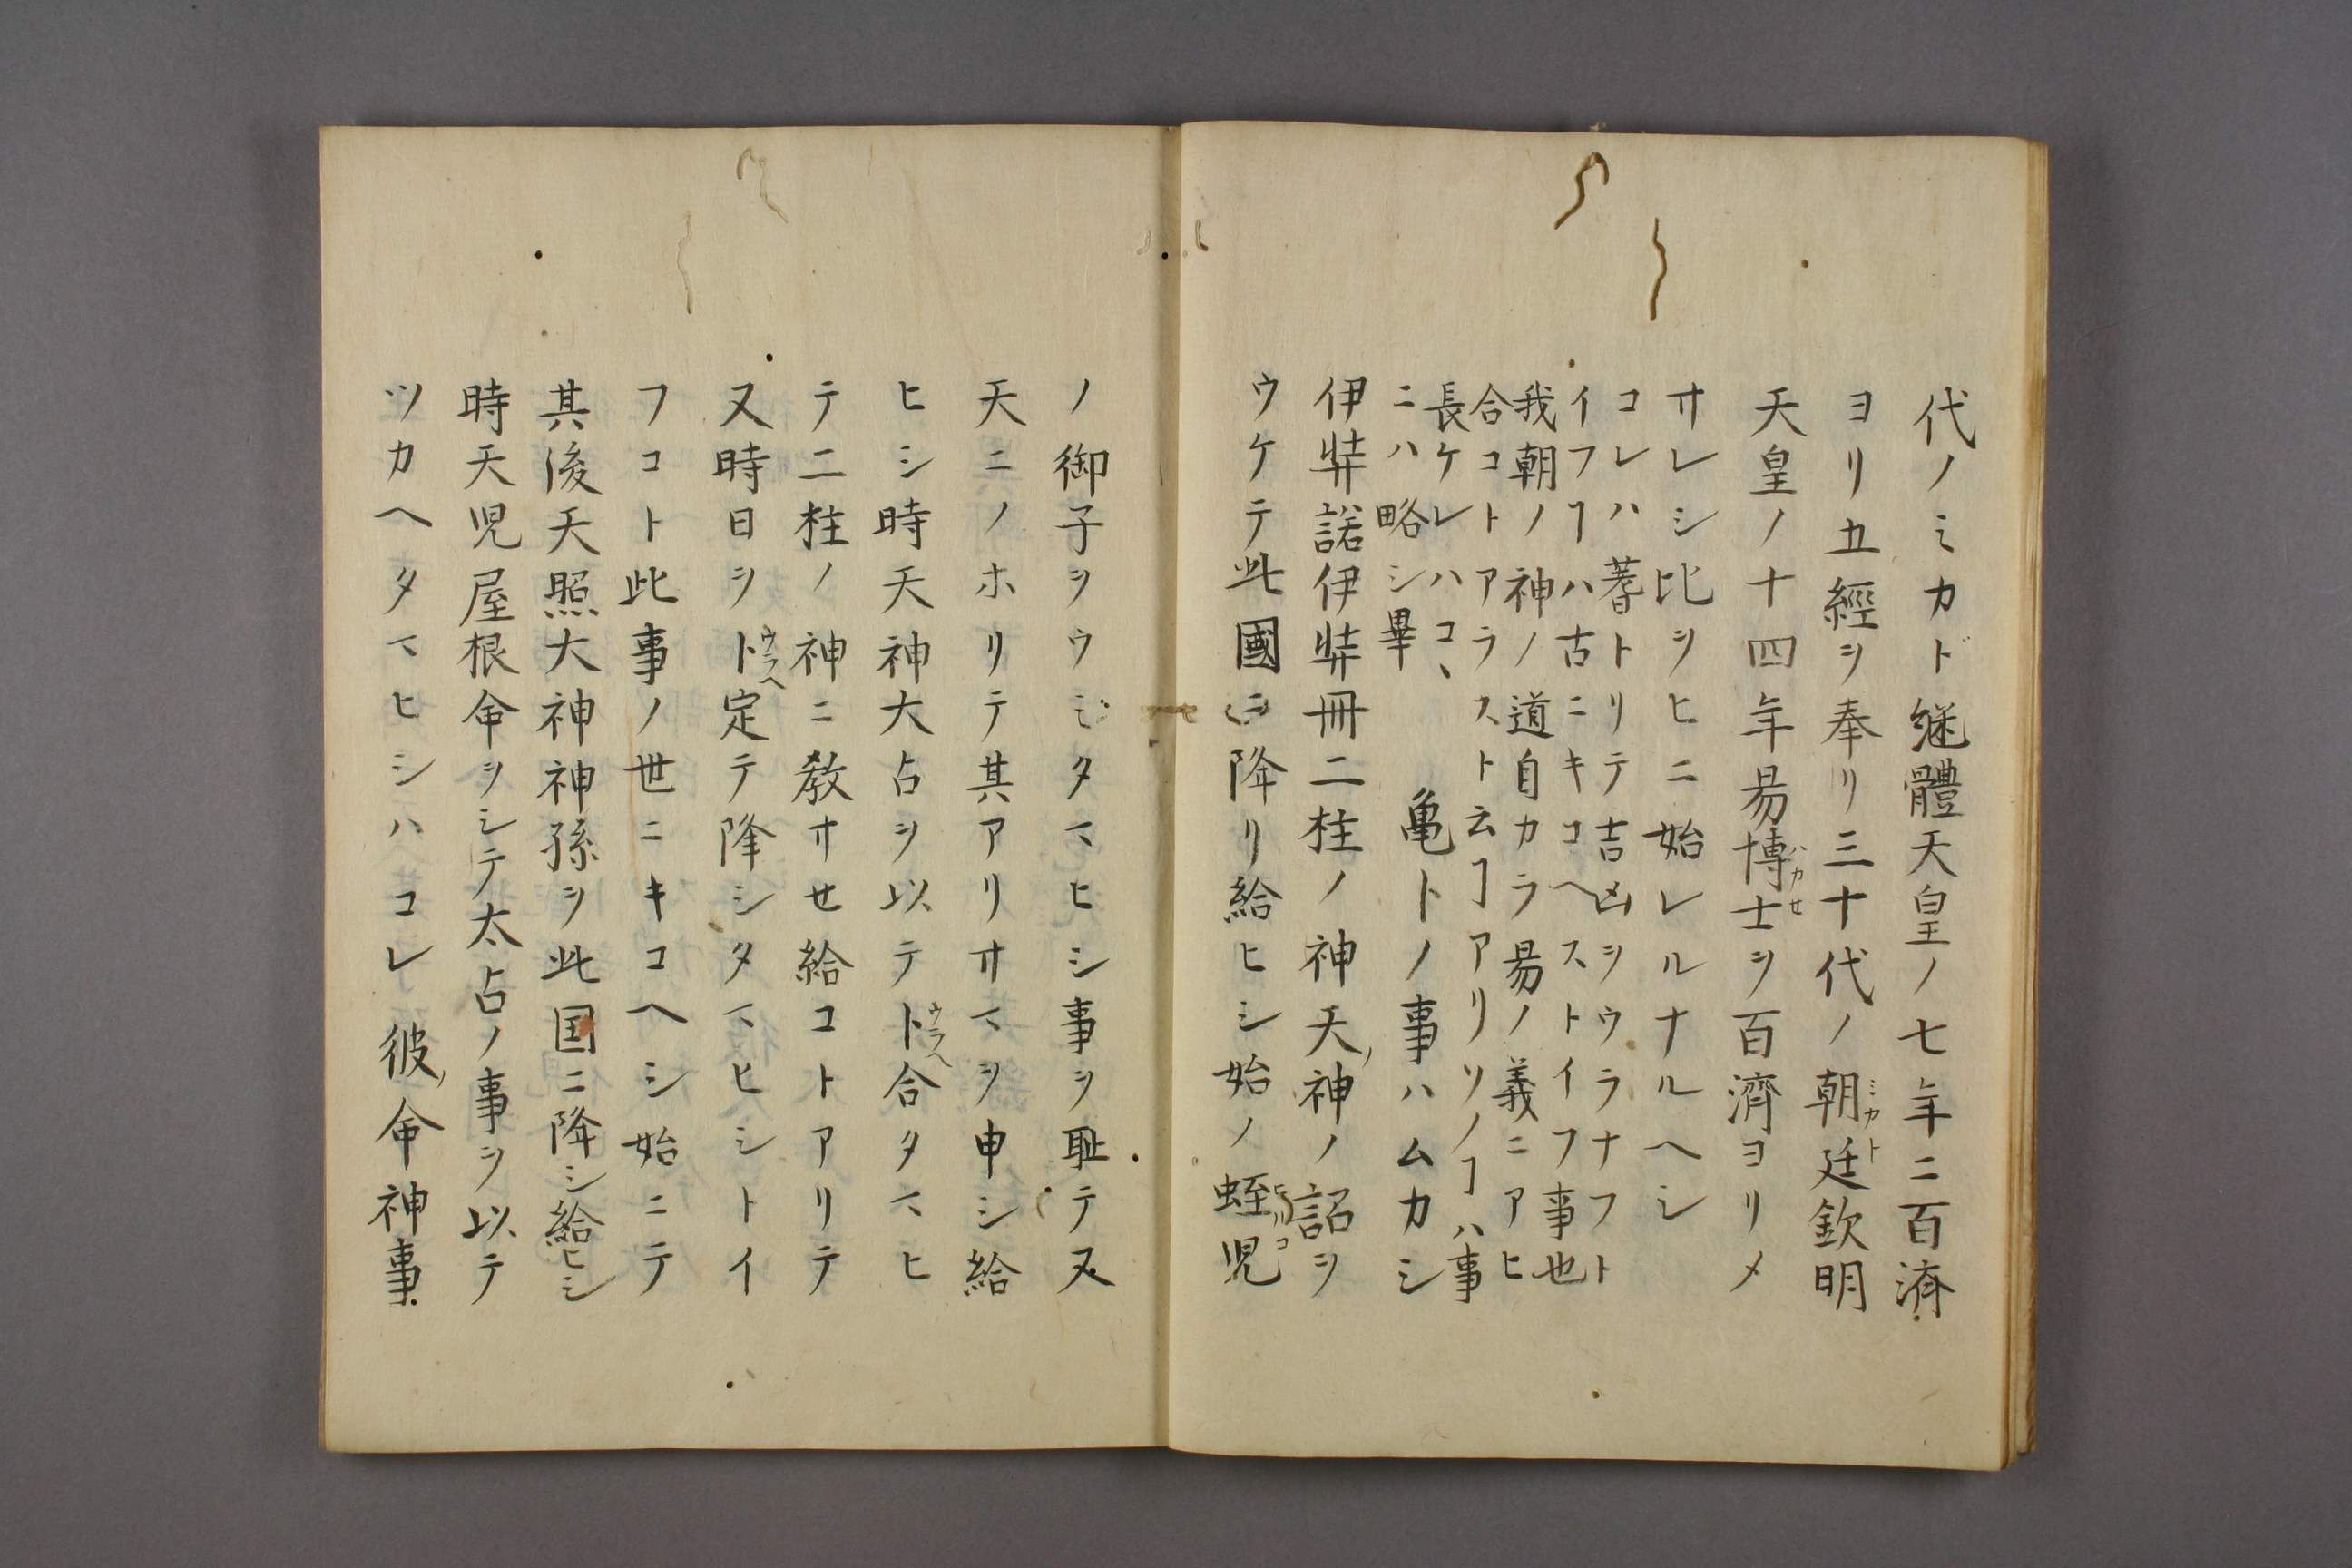 代ノミカド継體天皇ノ七年ニ百済
ヨリ五經ヲ奉リ三十代ノ朝廷欽明
天皇ノ十四年昜博士ヲ百濟ヨリメ
サレシ比ヲヒニ始レルナルヘシ
コレハ蓍トリテ吉凶ヲウラナフト
イフヿハ古ニキコヘストイフ事也
我朝ノ神ノ道自カラ昜ノ義ニアヒ
合コトアラスト云ヿアリソノヿハ事
長ケレハコヽ
ニハ略シ畢　亀卜ノ事ハムカシ
伊弉諾伊弉冊二柱ノ神天ノ神ノ詔ヲ
ウケテ此國ニ降リ給ヒシ始ノ蛭児
ノ御子ヲウミタマヒシ事ヲ耻テ又
天ニノホリテ其アリサマヲ申シ給
ヒシ時天神大占ヲ以テ卜合タマヒ
テ二柱ノ神ニ教サセ給コトアリテ
又時日ヲ卜定テ降シタマヒシトイ
フコト此事ノ世ニキコヘシ始ニテ
其後天照大神神孫ヲ此国ニ降シ給ヒシ
時天児屋根命ヲシテ太占ノ事ヲ以テ
ツカヘタマヒシハコレ彼ノ命神事